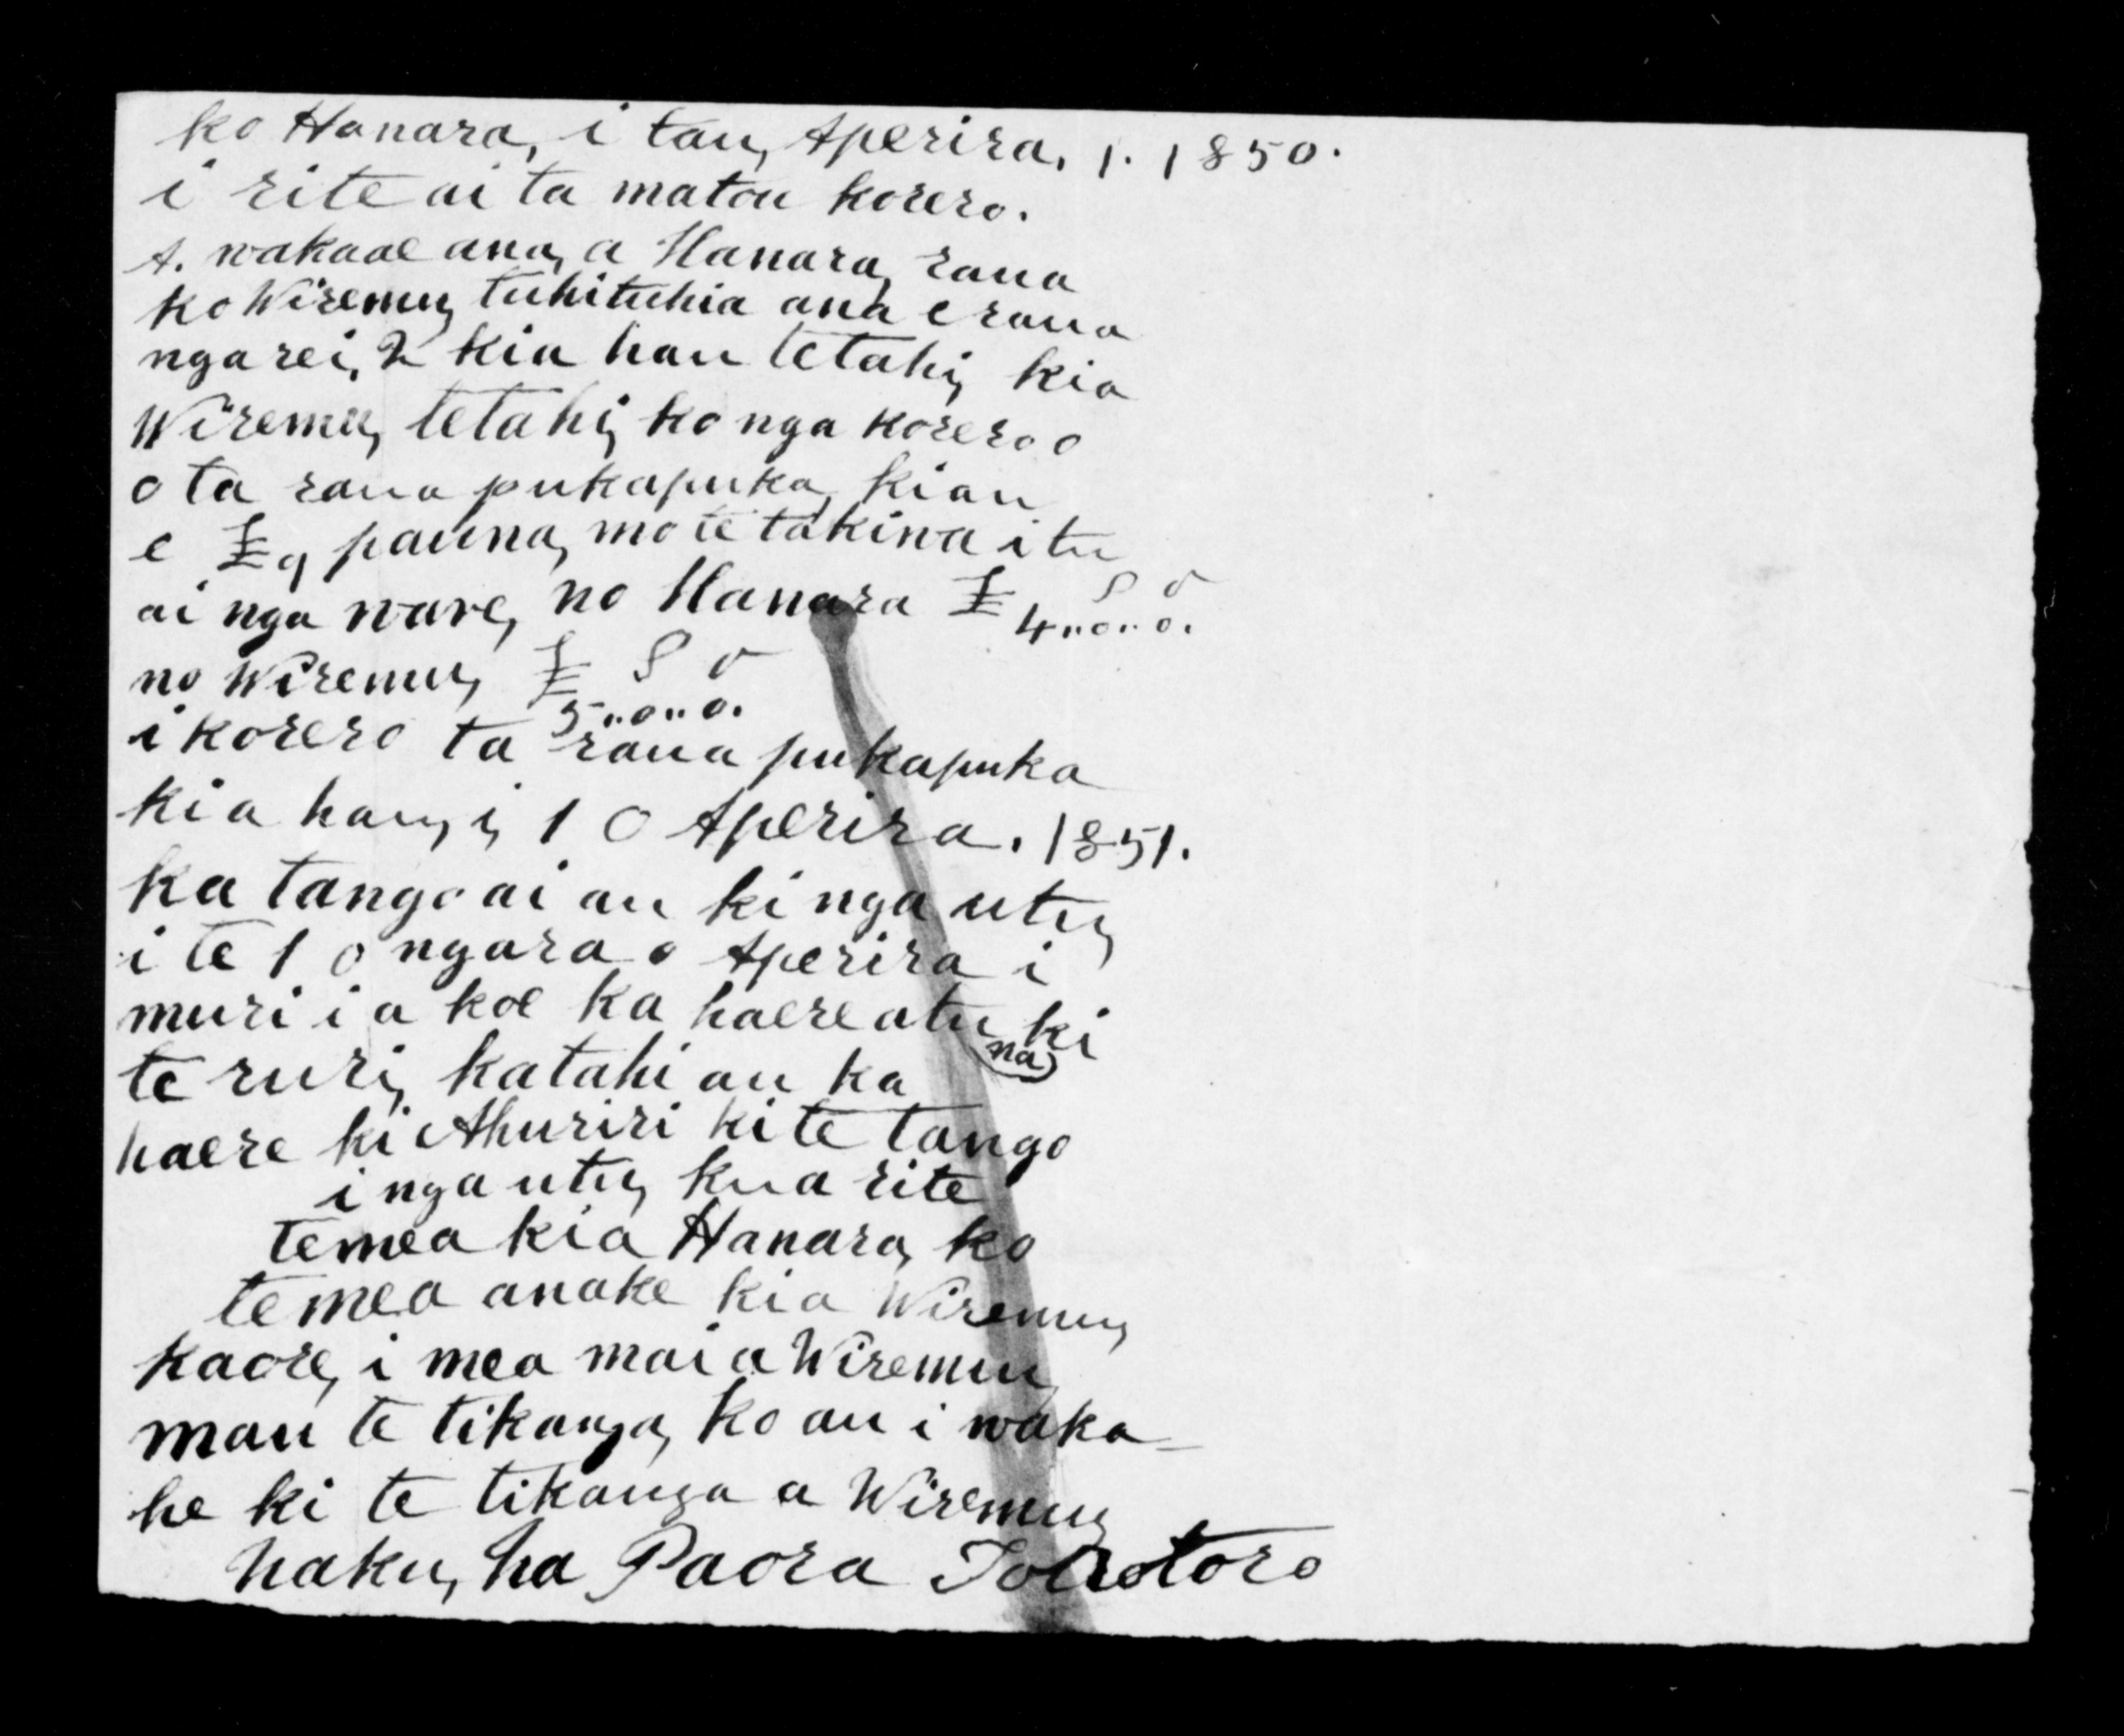 ko Hanara, i tau, Aperira, 1. 1850.
i rite ai ta matou korero.
A. wakaae ana, a Hanara, raua
ko Wiremu, tuhituhia ana e raua
nga rei, 2 kia hau tetahi, kia
Wiremu, tetahi, ko nga korero o
o ta raua pukapuka, kiau
e £9 pauna, mo te takiwa i tu
ai nga ware, no Hanara £4..0..0.
S D
no Wiremu, £5..0..0.
S D
i korero ta raua pukapuka
kia hau, i, 10 Aperira. 1851.
ka tango ai au ki nga utu,
i te 10 nga ra o Aperira i
muri i a koe ka haere atu (na) ki
te ruri, katahi au ka
haere ki Ahuriri ki te tango
i nga utu, kua rite
te mea kia Hanara, ko
te mea anake kia Wiremu,
kaore, i mea mai a Wiremu,
mau te tikanga, ko au i waka-
he ki te tikanga a Wiremu,
Naku, na Paora